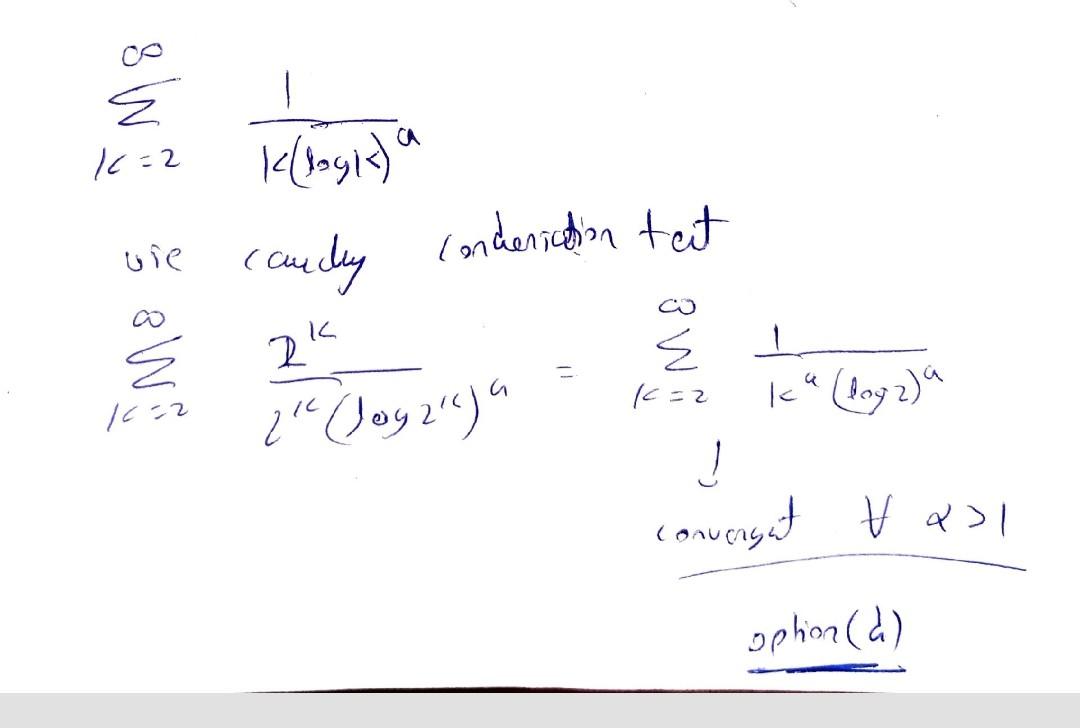 ∞ Σ k=2 1/(k(log k)^a)
use cauchy condensation test
∞ Σ k=2 2^k/(2^k(log 2^k)^a) = ∞ Σ k=2 1/(k^a (log 2)^a)
↓
convergent ∀ α>1
option(d)